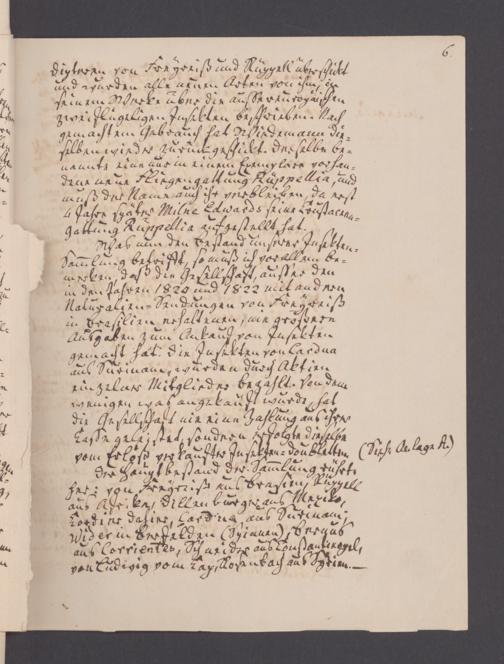 6.
Dipteren von Freyreiß und Rüppell überschickt
und wurden alle neuen Arten von ihm in
seinem Werke über die aussereuropäischen
zweiflügeligen Insekten beschrieben. Nach
gemachtem Gebrauch hat Wiedemann die-
selben wieder zurückgeschickt. Derselbe be-
nannte eine nur in einem Exemplare vorhan-
dene neue Fliegengattung Rüppellia, und
muß der Name auch ihr verbleiben, da erst
4 Jahre später Milne Edwards seine Crustaceen-
gattung Rüppellia aufgestellt hat.
Was nun den Bestand unserer Insekten-
Sammlung betrifft, so muß ich vor allem be-
merken, daß die Gesellschaft, ausser den
in den Jahren 1820 und 1822 mit anderen
Naturalien-Sendungen von Freyreiß
in Brasilien erhaltenen, nie grössere
Ausgaben zum Ankauf von Insekten
gemacht hat: die Insekten von Cardua
aus Surinam, wurden durch Aktien
einzelner Mitglieder bezahlt. Von dem
wenigen was angekauft wurde, hat
die Gesellschaft nie eine Zahlung aus ihrer
Casse geleistet, sondern erfolgte dieselbe
vom Erlöß verkaufter Insekten-doubletten.
(Sieh. Anlage A.)
Der Hauptbestand der Sammlung rührt
her: von Freyreiß aus Brasilien, Rüppell
aus Afrika, Dillenburger aus Mexiko,
daher, Cardua aus Surinam,
in (Spinnen),
aus Corrientes, Schneider aus Constantinopel,
von Ludwig vom Cap, aus Syrien.—